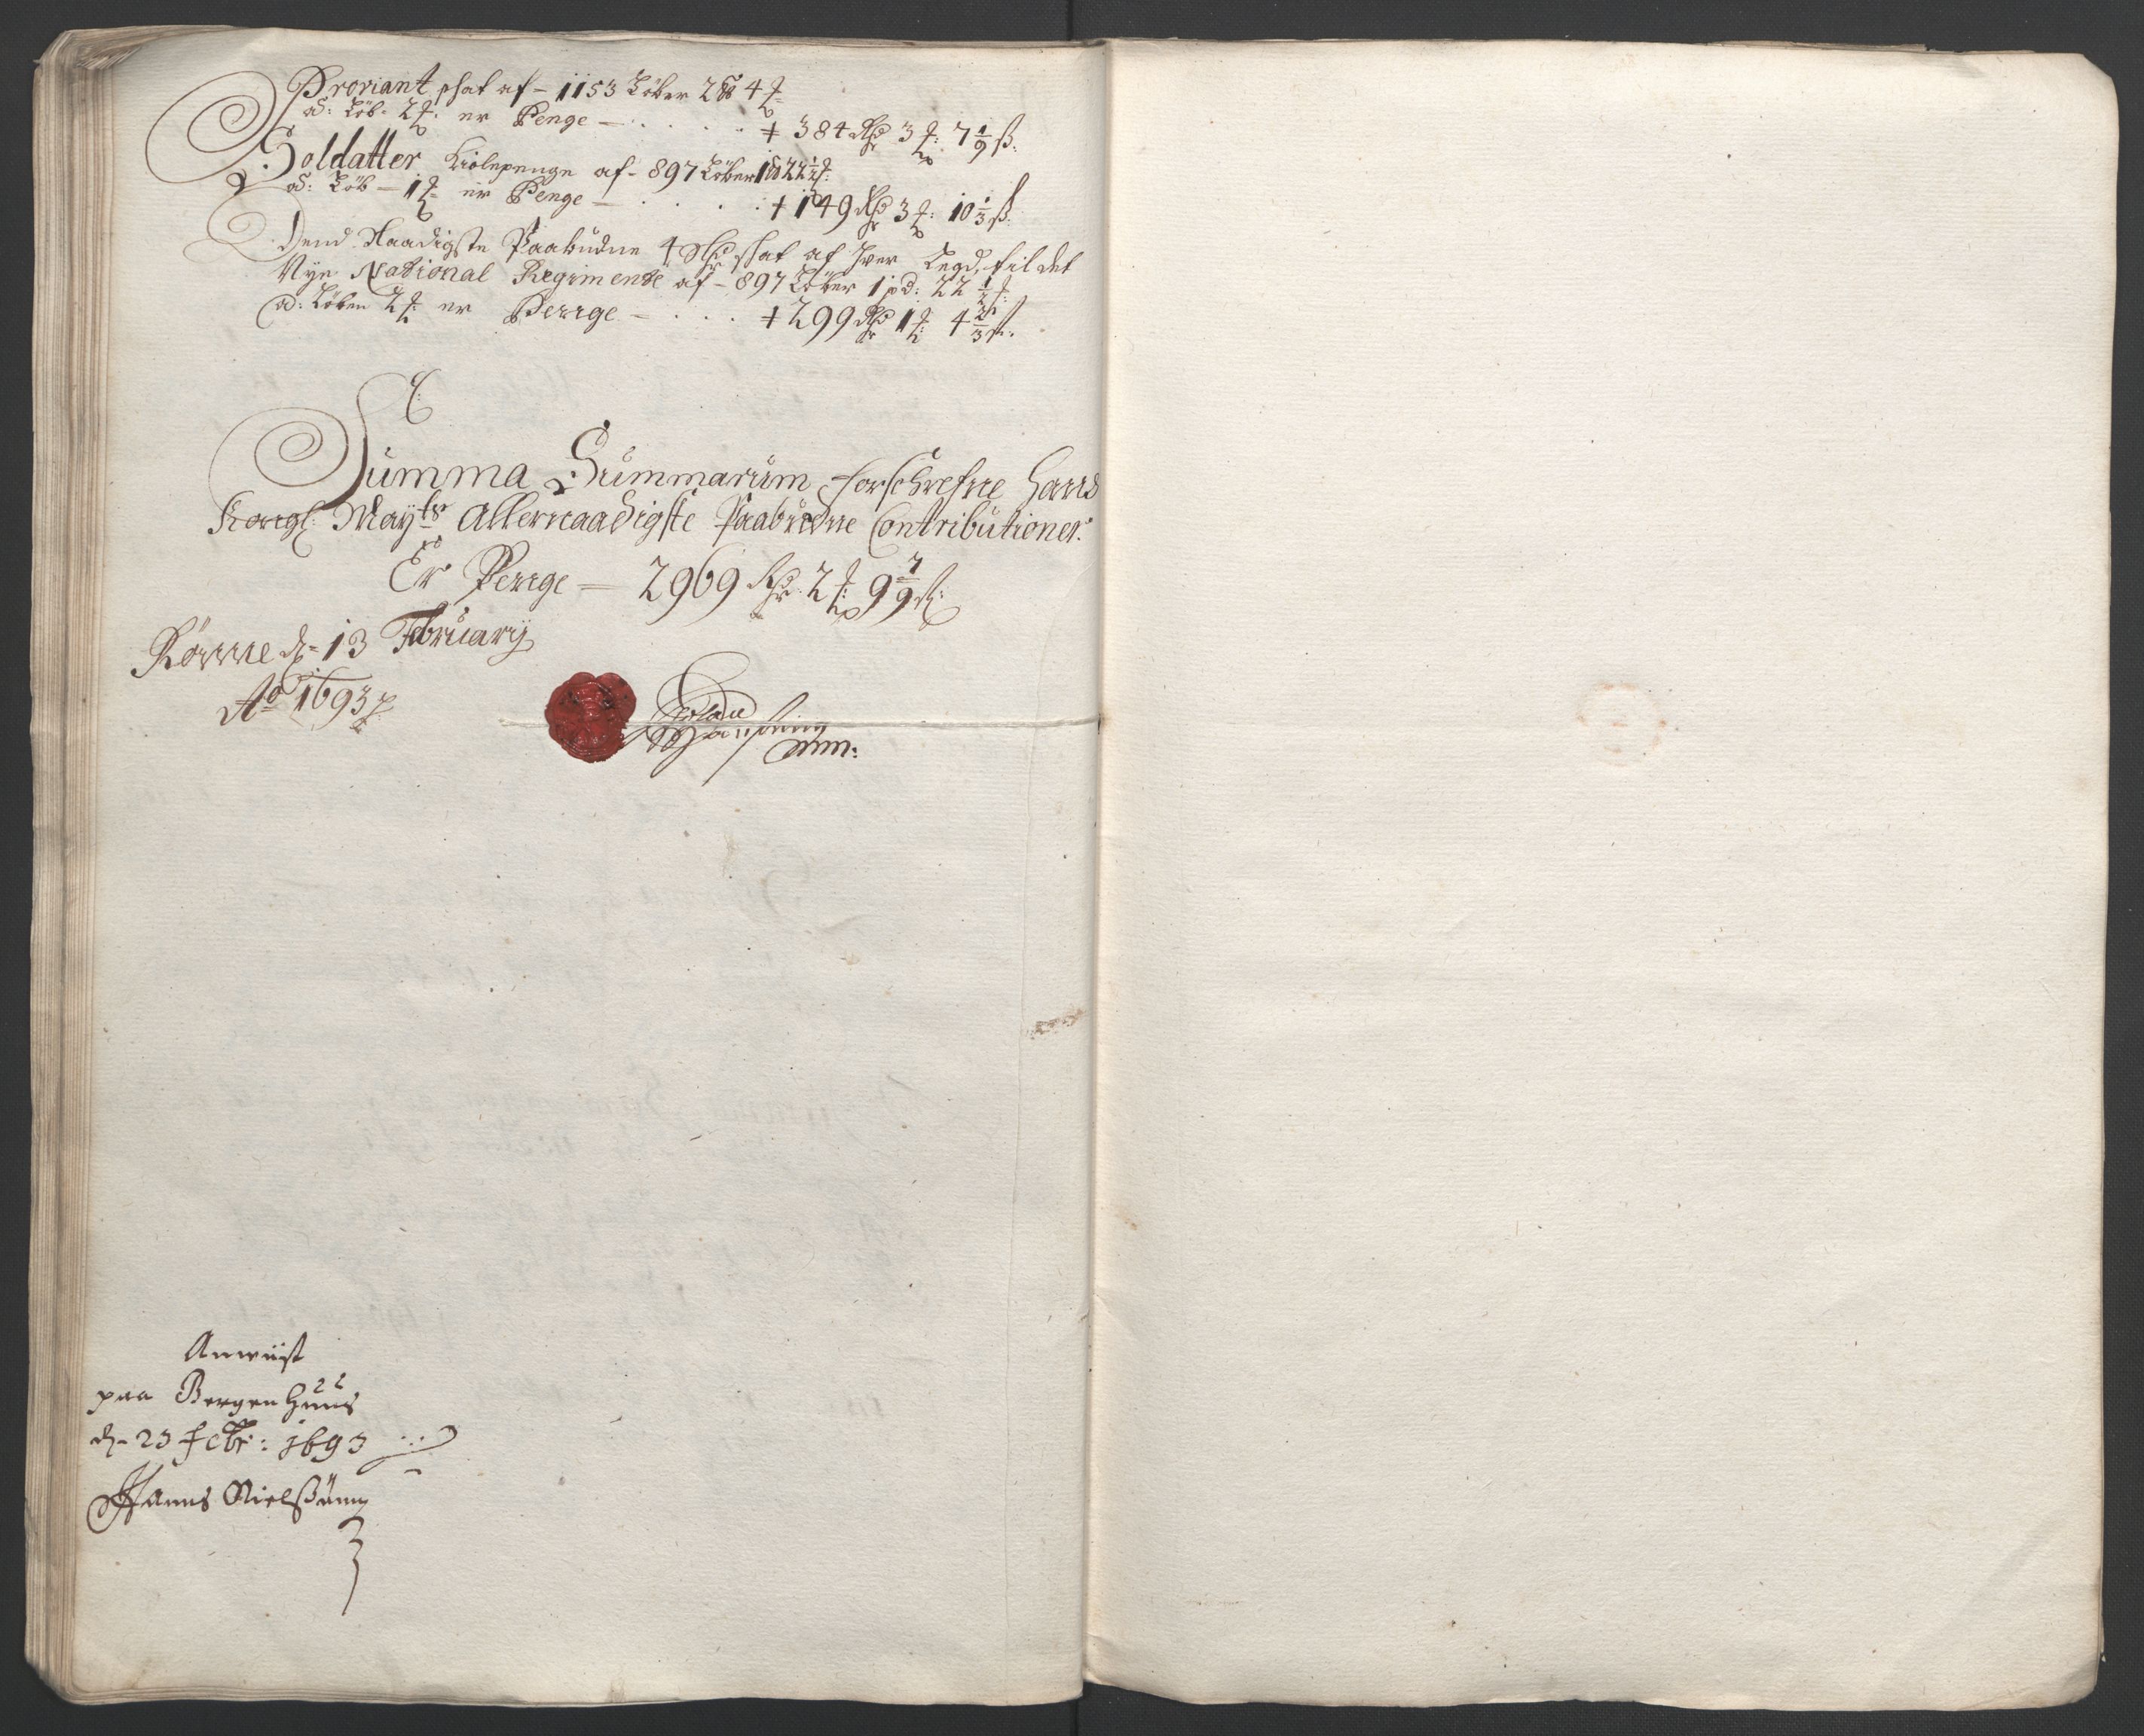 Proviant schat af - 1153 Løber 2 pd 4 ₰
ad: Løb - 2 ₰: er Penge - . . . . . + 384 Rdr 3 ₰: 7 1/9 ß:
Soldatter Kiolepenge af - 897 Løber 1 pd 22 1/2 ₰:
ad: Løb - 1 ₰ er Penge - . . . . + 149 Rdr 3 ₰: 10 1/3 ß:
Dend Naadigste Paabudne 4 Rdr schat af hver Legd, til det
Nye National Regimente af - 897 Løber 1 pd: 22 1/2 ₰
ad: Løben 2 ₰ er Penge - . . . + 299 Rdr 1 ₰: 4 2/3 ß.
Summa Summarum forschrefne Hans
Kongl: Mayts Allernaadigste Paabudne Contributioner
Er Penge - 2969 Rdr 2 ₰: 9 7/9 ß:
d- 13 February
Ao 1693
Anviist
paa Bergenhuus
d- 23 Febr: 1693
Hanns Nielßønn